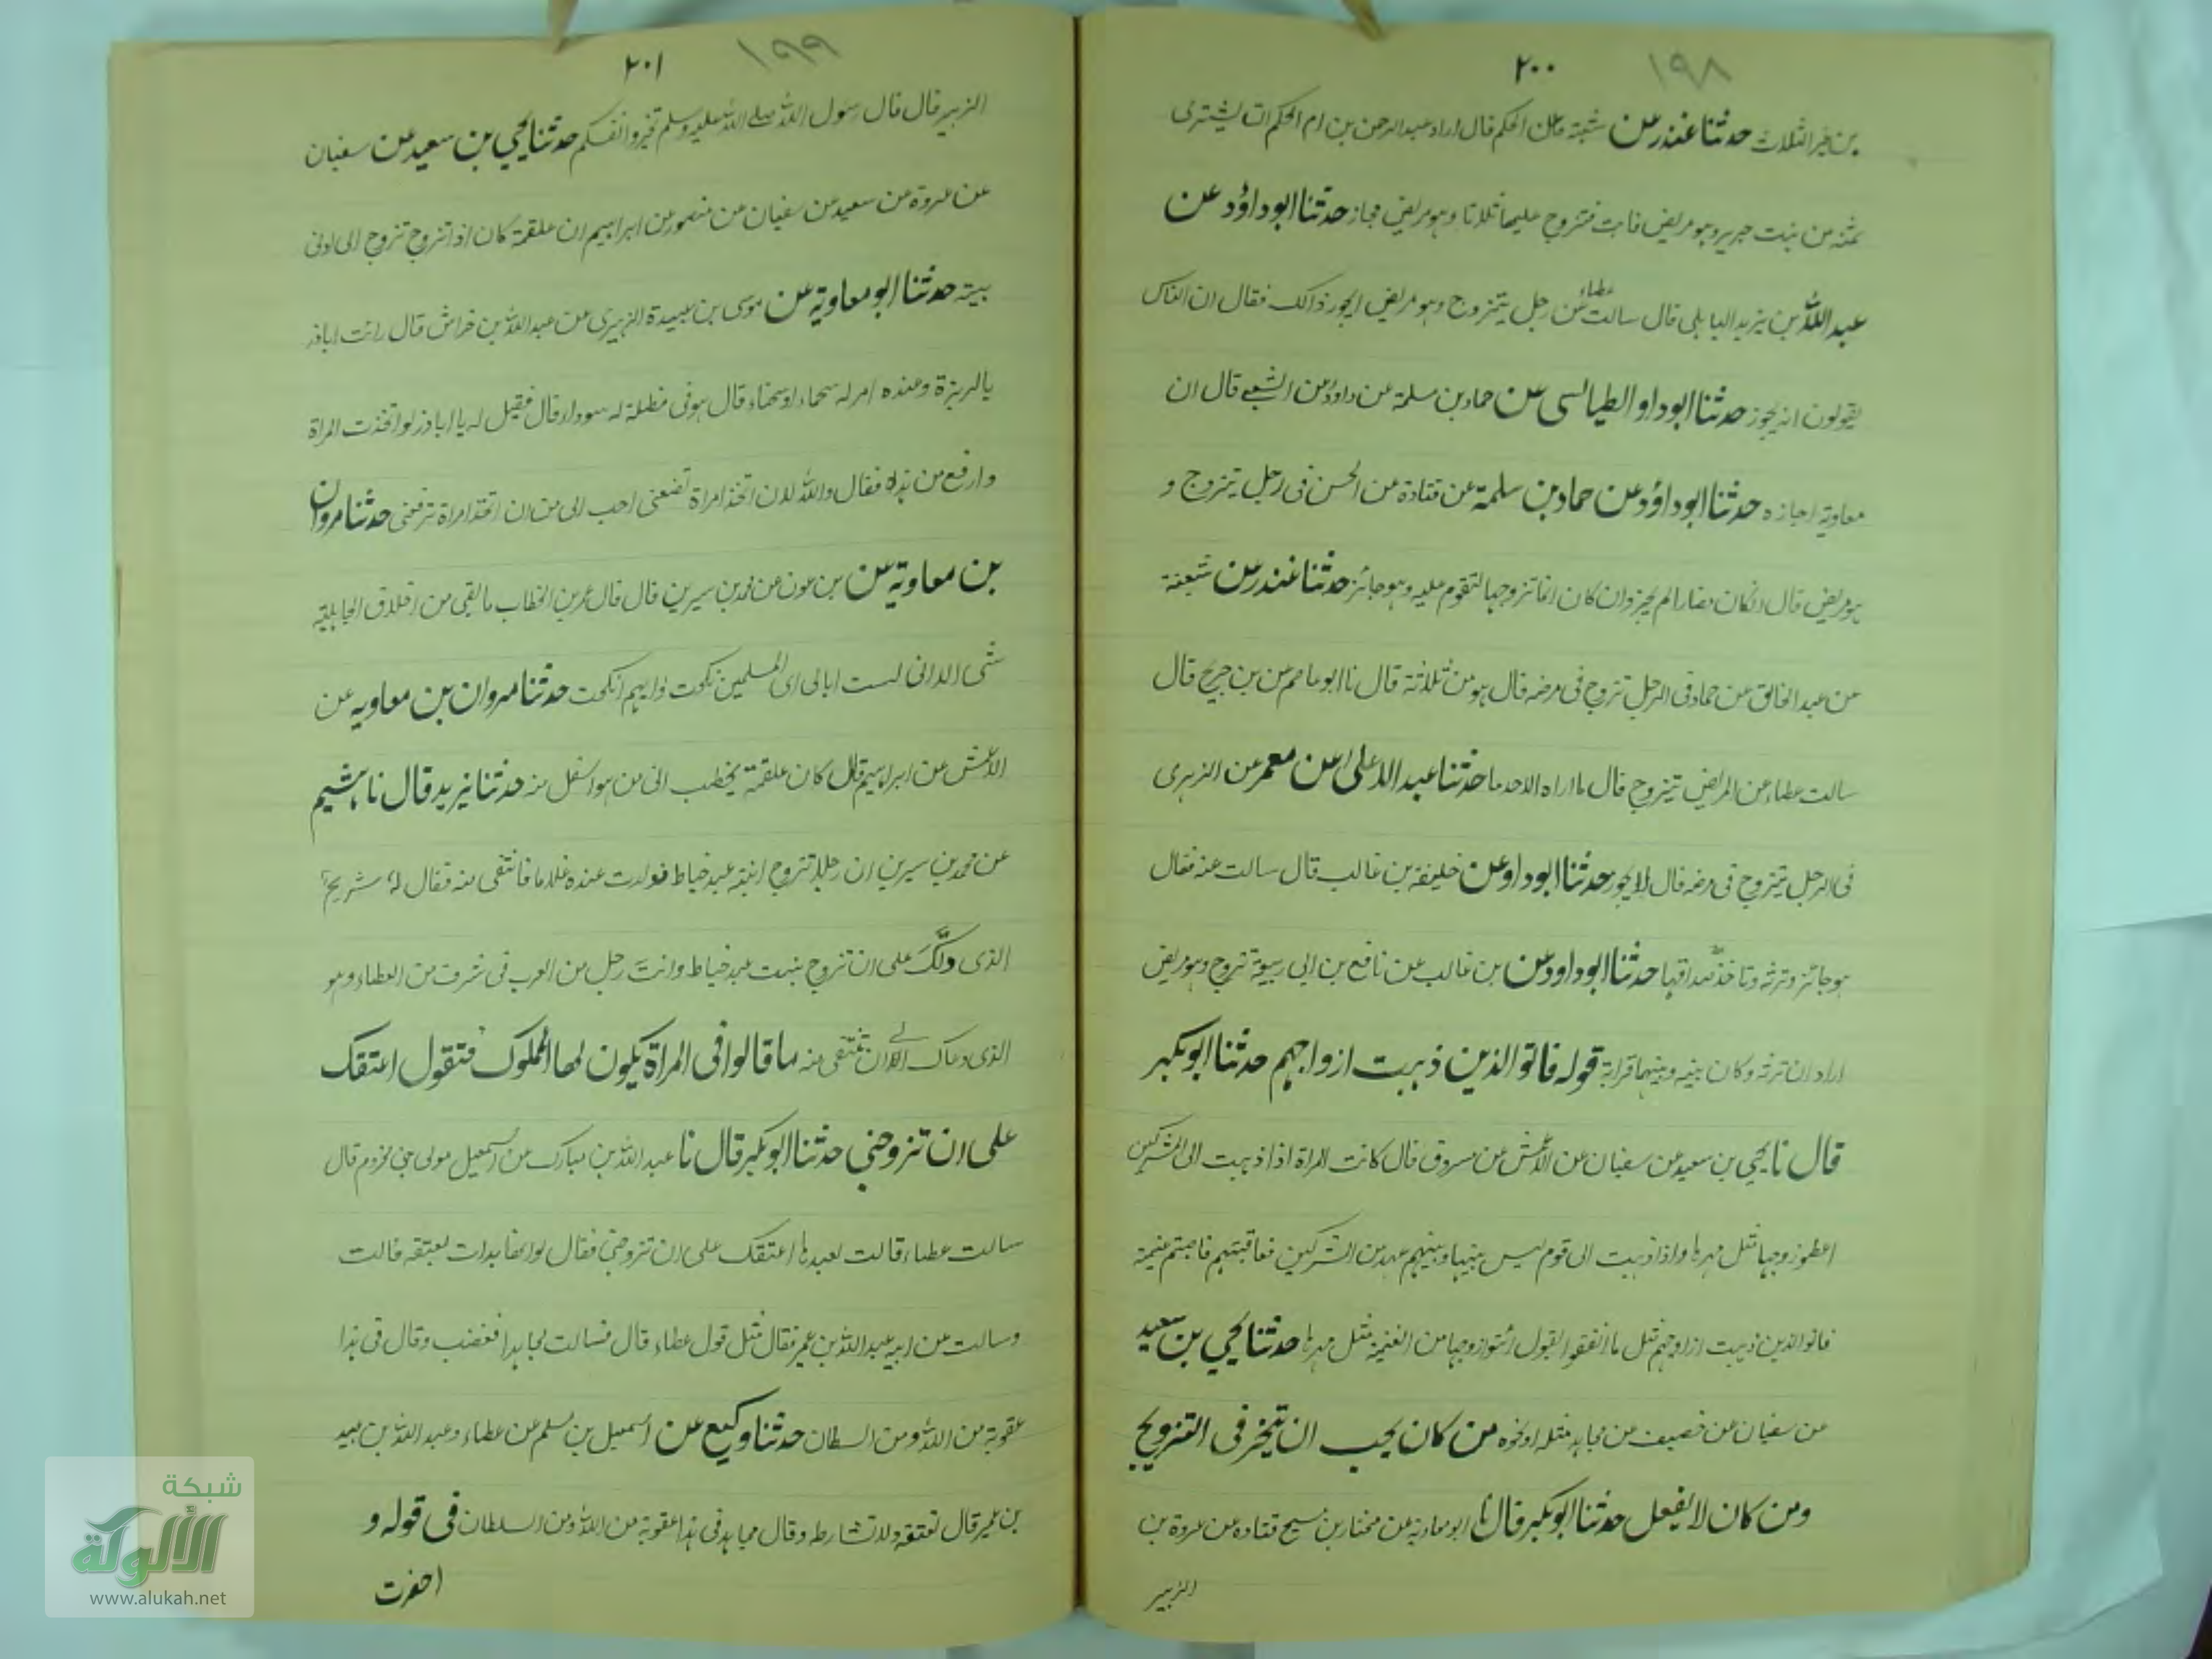 ٢٠٠ ١٩٨
من غير الثلاث حدثنا غندر عن شعبة عن الحكم قال اراد عبد الرحمن بن ام الحكم ان يشترى
ثمنه من بنت جرير وهو مريض فابت فتزوج عليها ثلاثا وهو مريض فجاز حدثنا ابو داؤد عن
عبد الله بن يزيد الباهلى قال سالت عطاء عن رجل يتزوج وهو مريض ايجوز ذالك فقال ان الناس
يقولون انه يجوز حدثنا ابو داو الطيالسى عن حماد بن سلمة عن داؤد عن الشعبى قال ان
معاوية اجازه حدثنا ابو داؤد عن حماد بن سلمة عن قتادة عن الحسن فى رجل يتزوج و
هو مريض قال ان كان مضارا لم يجز وان كان انما تزوجها لتقوم عليه وهو جائز حدثنا غندر عن شعبة
عن عبد الخالق عن حماد فى الرجل تزوج فى مرضه قال هو من ثلاثة قال نا ابو عاصم عن بن جريج قال
سالت عطاء عن المريض يتزوج قال ما اراه الا حدثا حدثنا عبد الاعلى عن معمر عن الزهرى
فى الرجل يتزوج فى مرضه قال لا يجوز حدثنا ابو داو عن خليفة بن غالب قال سالت عنه فقال
هو جائز وترثه وتاخذ صداقها حدثنا ابو داود عن بن غالب عن نافع بن ابى ربيعة تزوج وهو مريض
اراد ان ترثه وكان بينه وبينها قرابة قوله فاتوا الذين ذهبت ازواجهم حدثنا ابو بكر
قال نا يحيى بن سعيد عن سفيان عن الاعمش عن مسروق قال كانت المراة اذا ذهبت الى المشركين
اعطوا زوجها مثل مهرها واذا ذهبت الى قوم ليس بينها وبينهم عهد من المشركين فعاقبتهم فاصبتم غنيمة
فاتوا الذين ذهبت ازواجهم مثل ما انفقوا يقول اتوا زوجها من الغنيمة مثل مهرها حدثنا يحيى بن سعيد
عن سفيان عن خصيف عن مجاهد مثله او نحوه من كان يحب ان يتخير فى التزويج
ومن كان لا يفعل حدثنا ابو بكر قال نا ابو معاوية عن مختار بن منيح قتاده عن عروة بن
الزبير
٢٠١ ١٩٩
الزبير قال قال رسول الله صلى الله عليه وسلم تخيروا لنطفكم حدثنا يحيى بن سعيد عن سفيان
عن عروة عن سعيد عن سفيان عن منصور عن ابراهيم ان علقمة كان اذا تزوج تزوج الى ادنى
بيته حدثنا ابو معاوية عن موسى بن عبيدة الزبيرى عن عبد الله بن خراش قال رايت اباذر
بالربزة وعنده امرله سحماء او سحناء قال هو فى مظلة له سوداء قال فقيل له يا اباذر لو اتخذت المراة
وارفع من هذه فقال والله لان اتخذ امراة تضعنى احب الى من ان اتخذ امراة ترفعنى حدثنا مروان
بن معاوية عن بن عون عن محمد بن سيرين قال قال عمر بن الخطاب ما بقى من اخلاق الجاهلية
شى الا انى لست ابالى اى المسلمين نكحت وايهم انكحت حدثنا مروان بن معاويه عن
الاعمش عن ابراهيم قال كان علقمة يخطب الى من هو اسفل منه حدثنا يزيد قال نا هشيم
عن محمد بن سيرين ان رجلا تزوج ابنة عبد خياط فولدت عنده غلاما فانتفى منه فقال له شريح
الذى دلّك على ان تزوج بنت عبد خياط وانت رجل من العرب فى شرف من العطاء وهو
الذى دعاك الى ان تنتفى منه ما قالوا فى المراة يكون لها المملوك فتقول اعتقك
على ان تزوجنى حدثنا ابو بكر قال نا عبد الله بن مبارك عن اسمعيل مولى بنى مخزوم قال
سالت عطاء قالت لعبدها اعتقك على ان تزوجنى فقال لو انها بدات بعتقه قالت
وسالت عن ابيه عبد الله بن عمر فقال مثل قول عطاء قال فسالت مجاهدا فغضب وقال فى هذا
عقوبة من الله ومن السطان حدثنا وكيع عن اسمعيل بن مسلم عن عطاء وعبد الله بن عبيد
بن عمير قال تعتقه ولا تشارط وقال مجاهد فى هذا عقوبة من الله ومن السلطان فى قوله و
احضرت
شبكة
الألوكة
www.alukah.net